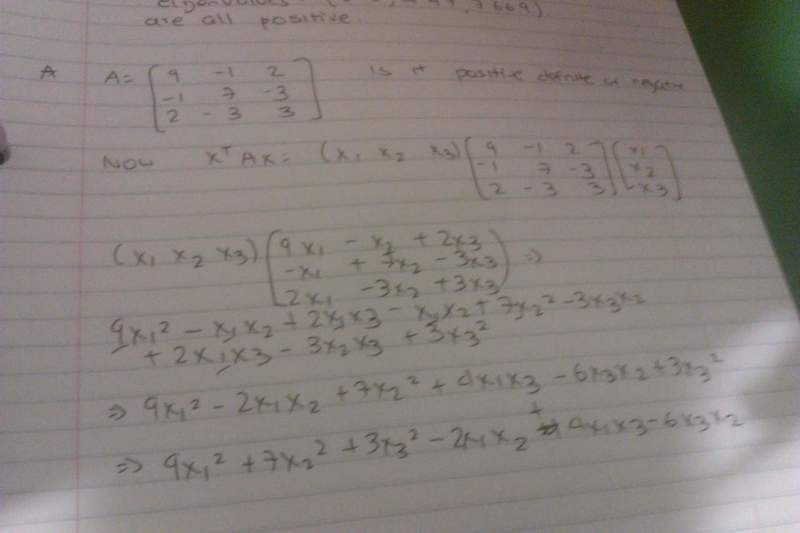 are all positive
A A = [9 -1 2
-1 7 -3
2 -3 3] is it positive definite or negative
Now xᵀAx = (x₁ x₂ x₃) [9 -1 2
-1 7 -3
2 -3 3] [x₁
x₂
x₃]
(x₁ x₂ x₃) [9x₁ - x₂ + 2x₃
-x₁ + 7x₂ - 3x₃
2x₁ -3x₂ + 3x₃] ⇒
9x₁² - x₁x₂ + 2x₁x₃ - x₁x₂ + 7x₂² - 3x₃x₂
+ 2x₁x₃ - 3x₂x₃ + 3x₃²
⇒ 9x₁² - 2x₁x₂ + 7x₂² + 4x₁x₃ - 6x₃x₂ + 3x₃²
⇒ 9x₁² + 7x₂² + 3x₃² - 2x₁x₂ + 4x₁x₃ - 6x₃x₂